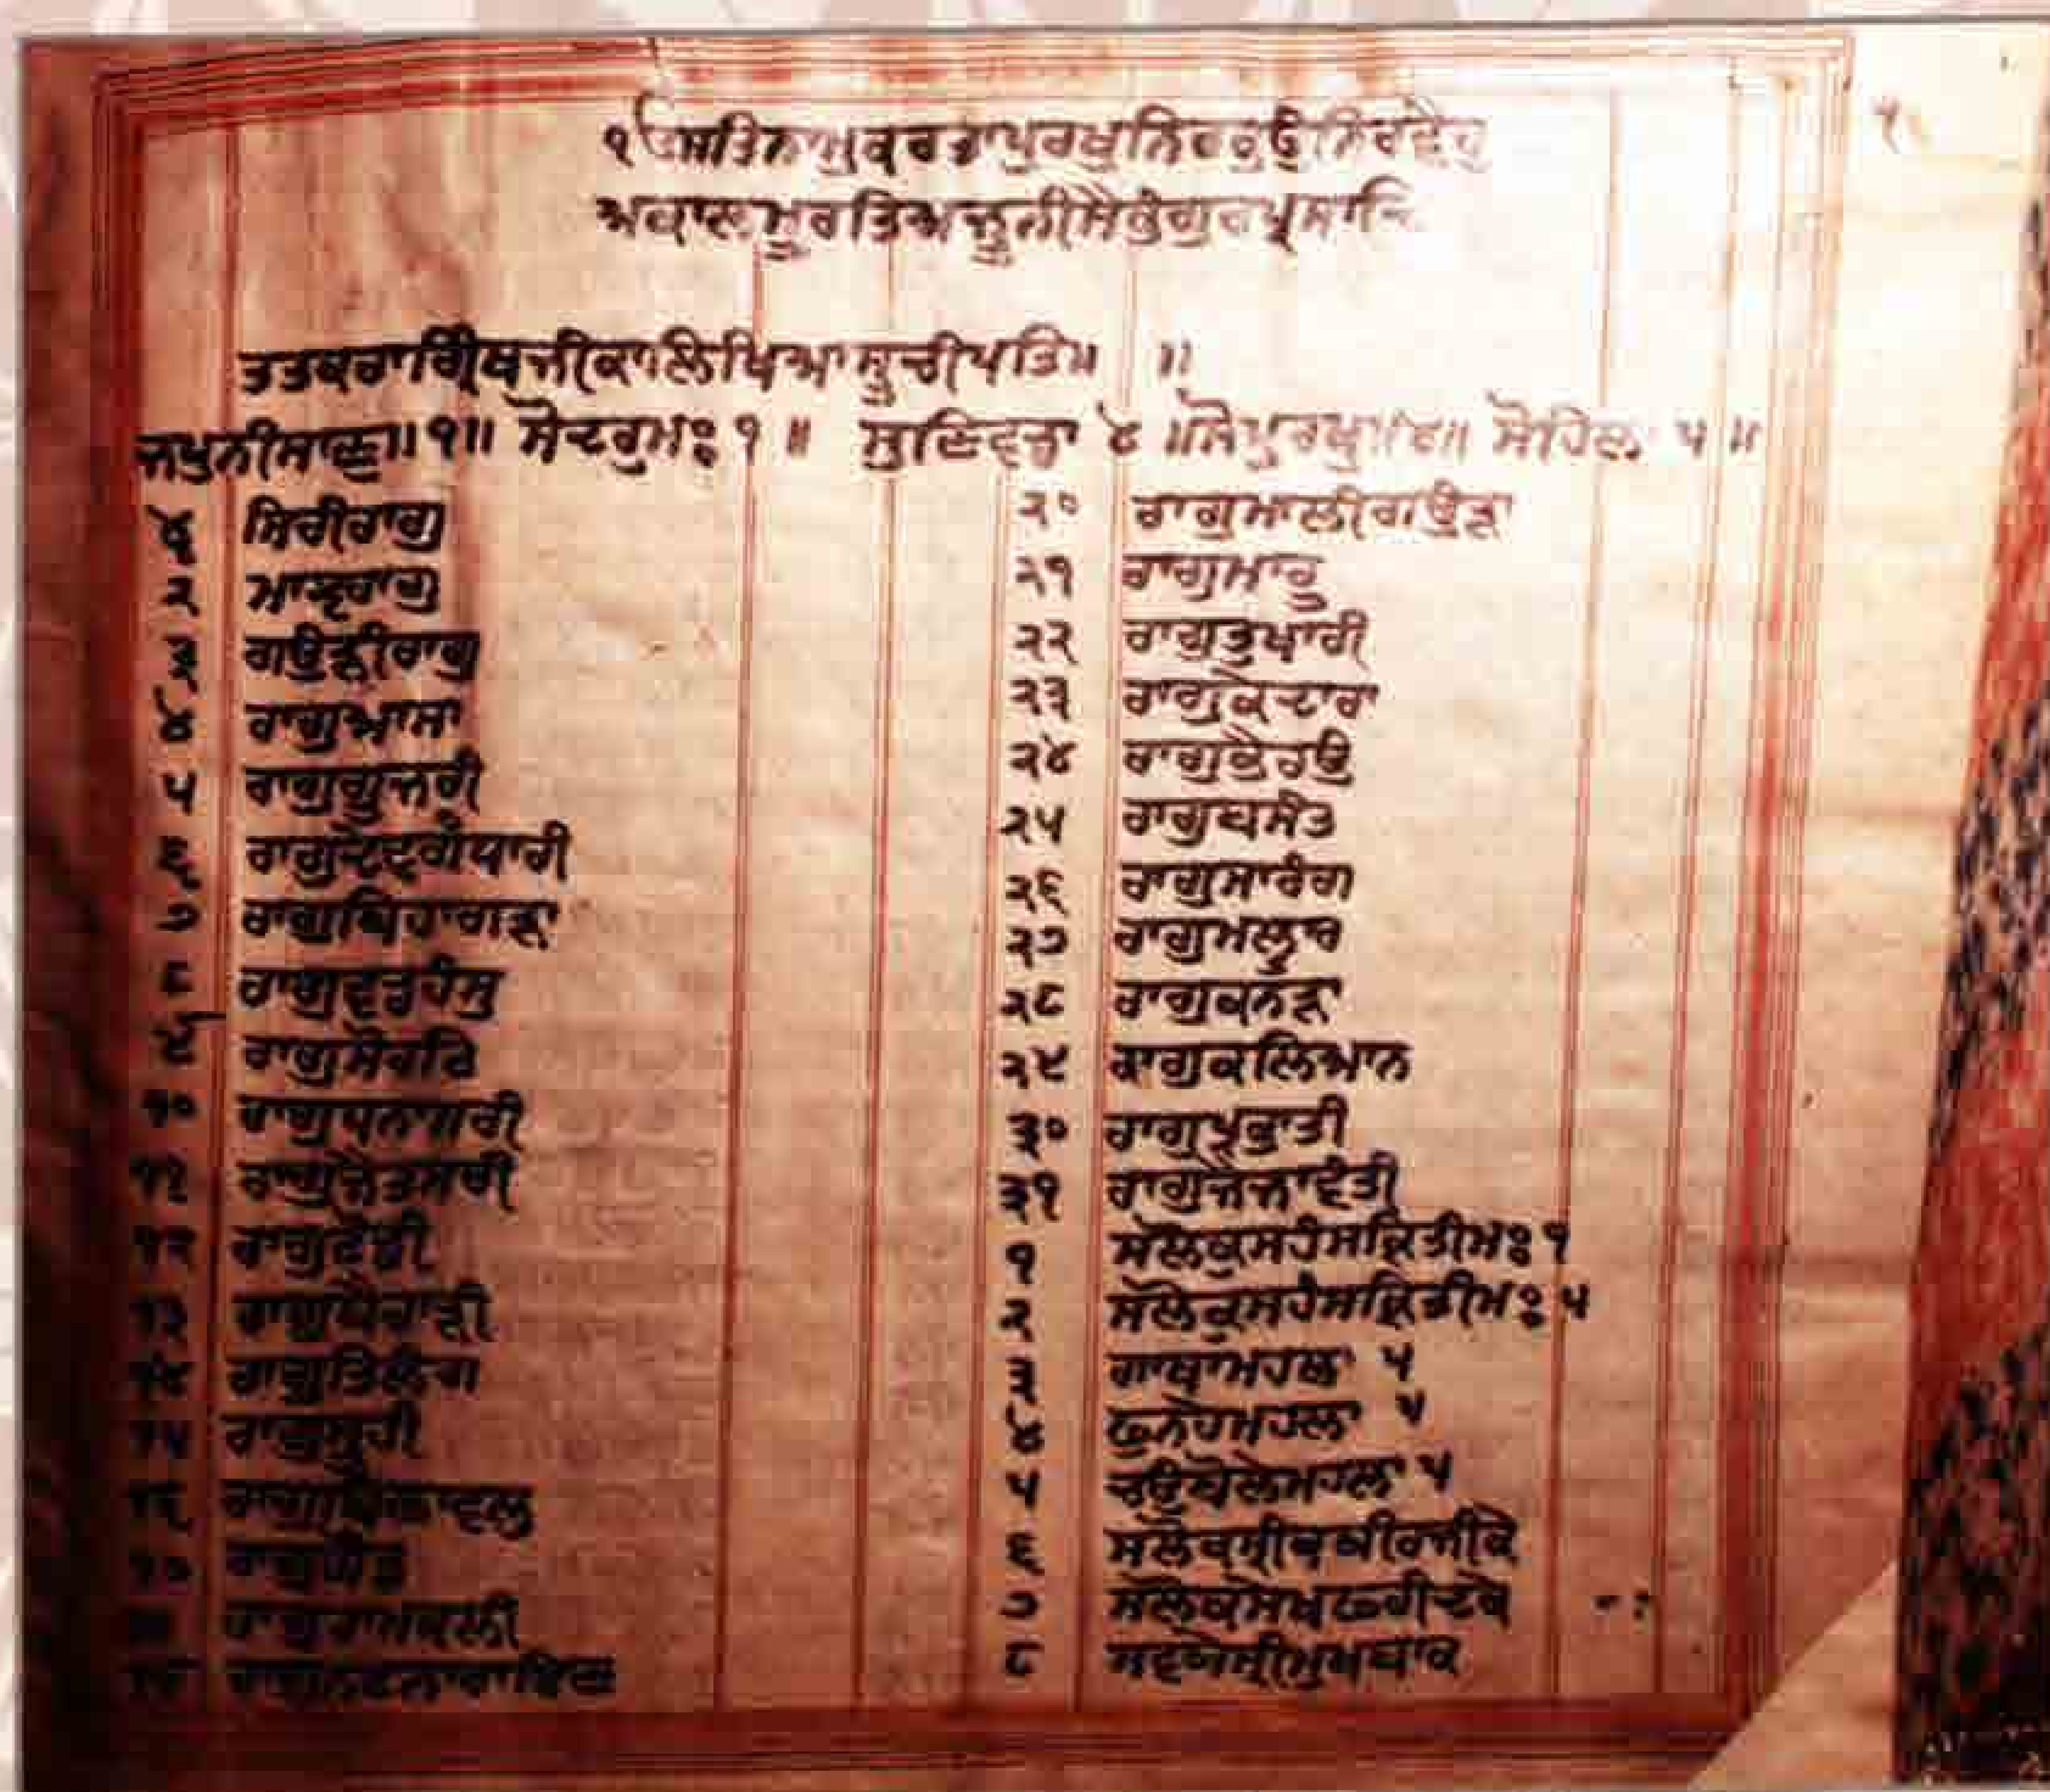 ੧ੳਸਤਿਨਾਮੁਕਰਤਾਪੁਰਖੁਨਿਰਭਉਨਿਰਵੈਰੁ
ਅਕਾਲਮੂਰਤਿਅਜੂਨੀਸੈਭੰਗੁਰਪ੍ਰਸਾਦਿ
ਤਤਕਰਾਗ੍ਰਿੰਥਜੀਕਾਲਿਖਿਆਸੂਚੀਪਤਿ॥ ॥
ਜਪੁਨੀਸਾਣੁ॥੧॥ ਸੋਦਰੁਮਃ੧॥ ਸੁਣਿਵਡਾ ੪ ॥ਸੋਪੁਰਖੁ॥੪॥ ਸੋਹਿਲਾ ੫ ॥
੧ ਸਿਰੀਰਾਗੁ
੨ ਮਾਝਰਾਗੁ
੩ ਗਉੜੀਰਾਗੁ
੪ ਰਾਗੁਆਸਾ
੫ ਰਾਗੁਗੂਜਰੀ
੬ ਰਾਗੁਦੇਵਗੰਧਾਰੀ
੭ ਰਾਗੁਬਿਹਾਗੜਾ
੮ ਰਾਗੁਵਡਹੰਸੁ
੯ ਰਾਗੁਸੋਰਠਿ
੧੦ ਰਾਗੁਧਨਾਸਰੀ
੧੧ ਰਾਗੁਜੈਤਸਰੀ
੧੨ ਰਾਗੁਟੋਡੀ
੧੩ ਰਾਗੁਬੈਰਾੜੀ
੧੪ ਰਾਗੁਤਿਲੰਗ
੧੫ ਰਾਗੁਸੂਹੀ
੧੬ ਰਾਗੁਬਿਲਾਵਲੁ
੧੭ ਰਾਗੁਗੌਡ
੧੮ ਰਾਗੁਰਾਮਕਲੀ
੧੯ ਰਾਗੁਨਟਨਾਰਾਇਣ
੨੦ ਰਾਗੁਮਾਲੀਗਉੜਾ
੨੧ ਰਾਗੁਮਾਰੂ
੨੨ ਰਾਗੁਤੁਖਾਰੀ
੨੩ ਰਾਗੁਕੇਦਾਰਾ
੨੪ ਰਾਗੁਭੈਰਉ
੨੫ ਰਾਗੁਬਸੰਤ
੨੬ ਰਾਗੁਸਾਰੰਗ
੨੭ ਰਾਗੁਮਲਾਰ
੨੮ ਰਾਗੁਕਾਨੜਾ
੨੯ ਰਾਗੁਕਲਿਆਨ
੩੦ ਰਾਗੁਪ੍ਰਭਾਤੀ
੩੧ ਰਾਗੁਜੈਜਾਵੰਤੀ
੧ ਸਲੋਕੁਸਹੰਸਕ੍ਰਿਤੀਮਃ੧
੨ ਸਲੋਕੁਸਹੰਸਕ੍ਰਿਤੀਮਃ੫
੩ ਗਾਥਾਮਹਲਾ ੫
੪ ਫੁਨਹੇਮਹਲਾ ੫
੫ ਚਉਬੋਲੇਮਹਲਾ ੫
੬ ਸਲੋਕਸ੍ਰੀਕਬੀਰਜੀਕੇ
੭ ਸਲੋਕਸੇਖਫਰੀਦਕੇ
੮ ਸਵਯੇਸ੍ਰੀਮੁਖਬਾਕ